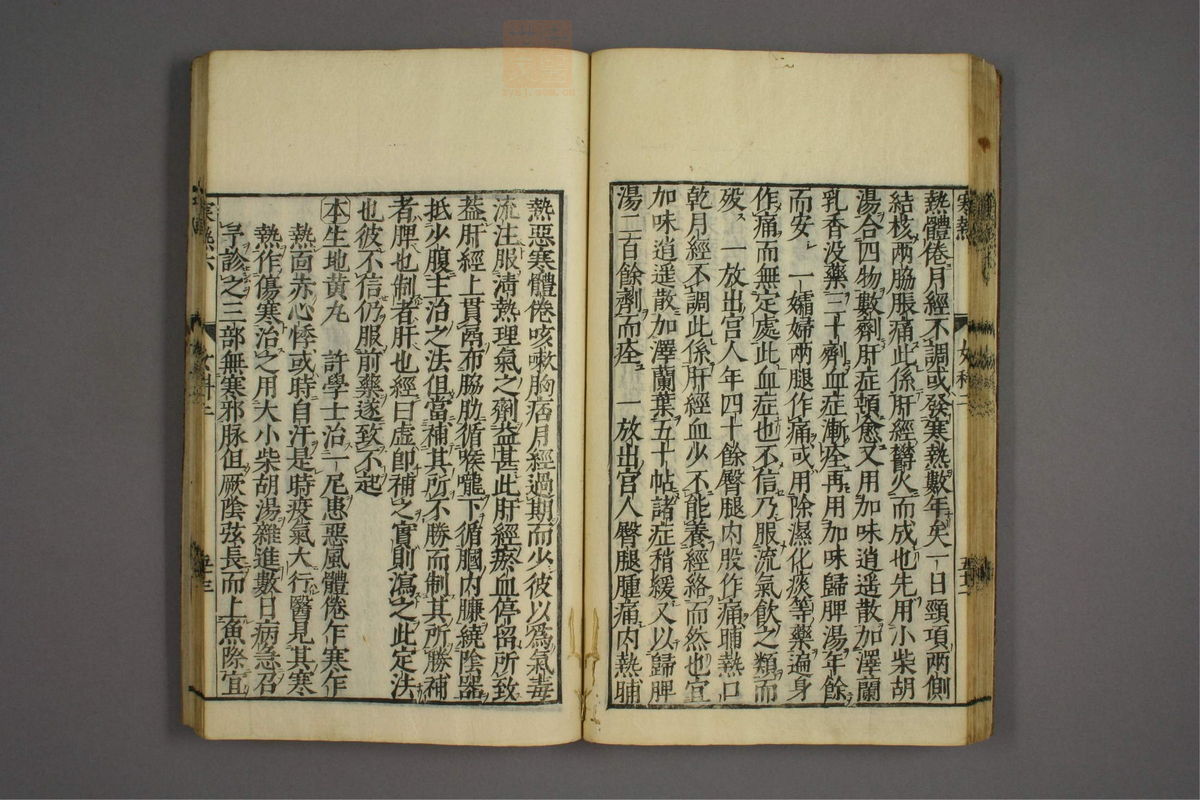 熱體倦月經不調或發寒熱數年矣一日頸項兩側
結核兩脇脹痛此係肝經欝火而成也先用小柴胡
湯合四物數劑肝症頓愈又用加味逍遥散加澤蘭
乳香没藥三十劑血症漸痊再用加味歸脾湯年餘
而安 一孀婦兩腿作痛或用除濕化痰等藥遍身
作痛而無定處此血症也不信乃服流氣飲之類而
殁 一放出宫人年四十餘臀腿内股作痛晡熱口
乾月經不調此係肝經血少不能養經絡而然也宜
加味逍遥散加澤蘭葉五十帖諸症稍緩又以歸脾
湯二百餘劑而痊 一放出宫人臀腿腫痛内熱晡
熱惡寒體倦咳嗽胸痞月經過期而少彼以爲氣毒
流注服清熱理氣之劑益甚此肝經瘀血停留所致
葢肝經上貫鬲布脇肋循喉嚨下循膕内臁繞陰器
抵少腹主治之法但當補其所不勝而制其所勝補
者脾也制者肝也經曰虚即補之實則瀉之此定法
也彼不信仍服前藥遂致不起
本生地黄丸 許學士治一尼患惡風體倦乍寒乍
熱面赤心悸或時自汗是時疫氣大行醫見其寒
熱作傷寒治之用大小柴胡湯雜進數日病急召
予診之三部無寒邪脉但厥陰弦長而上魚際宜
寒熱六